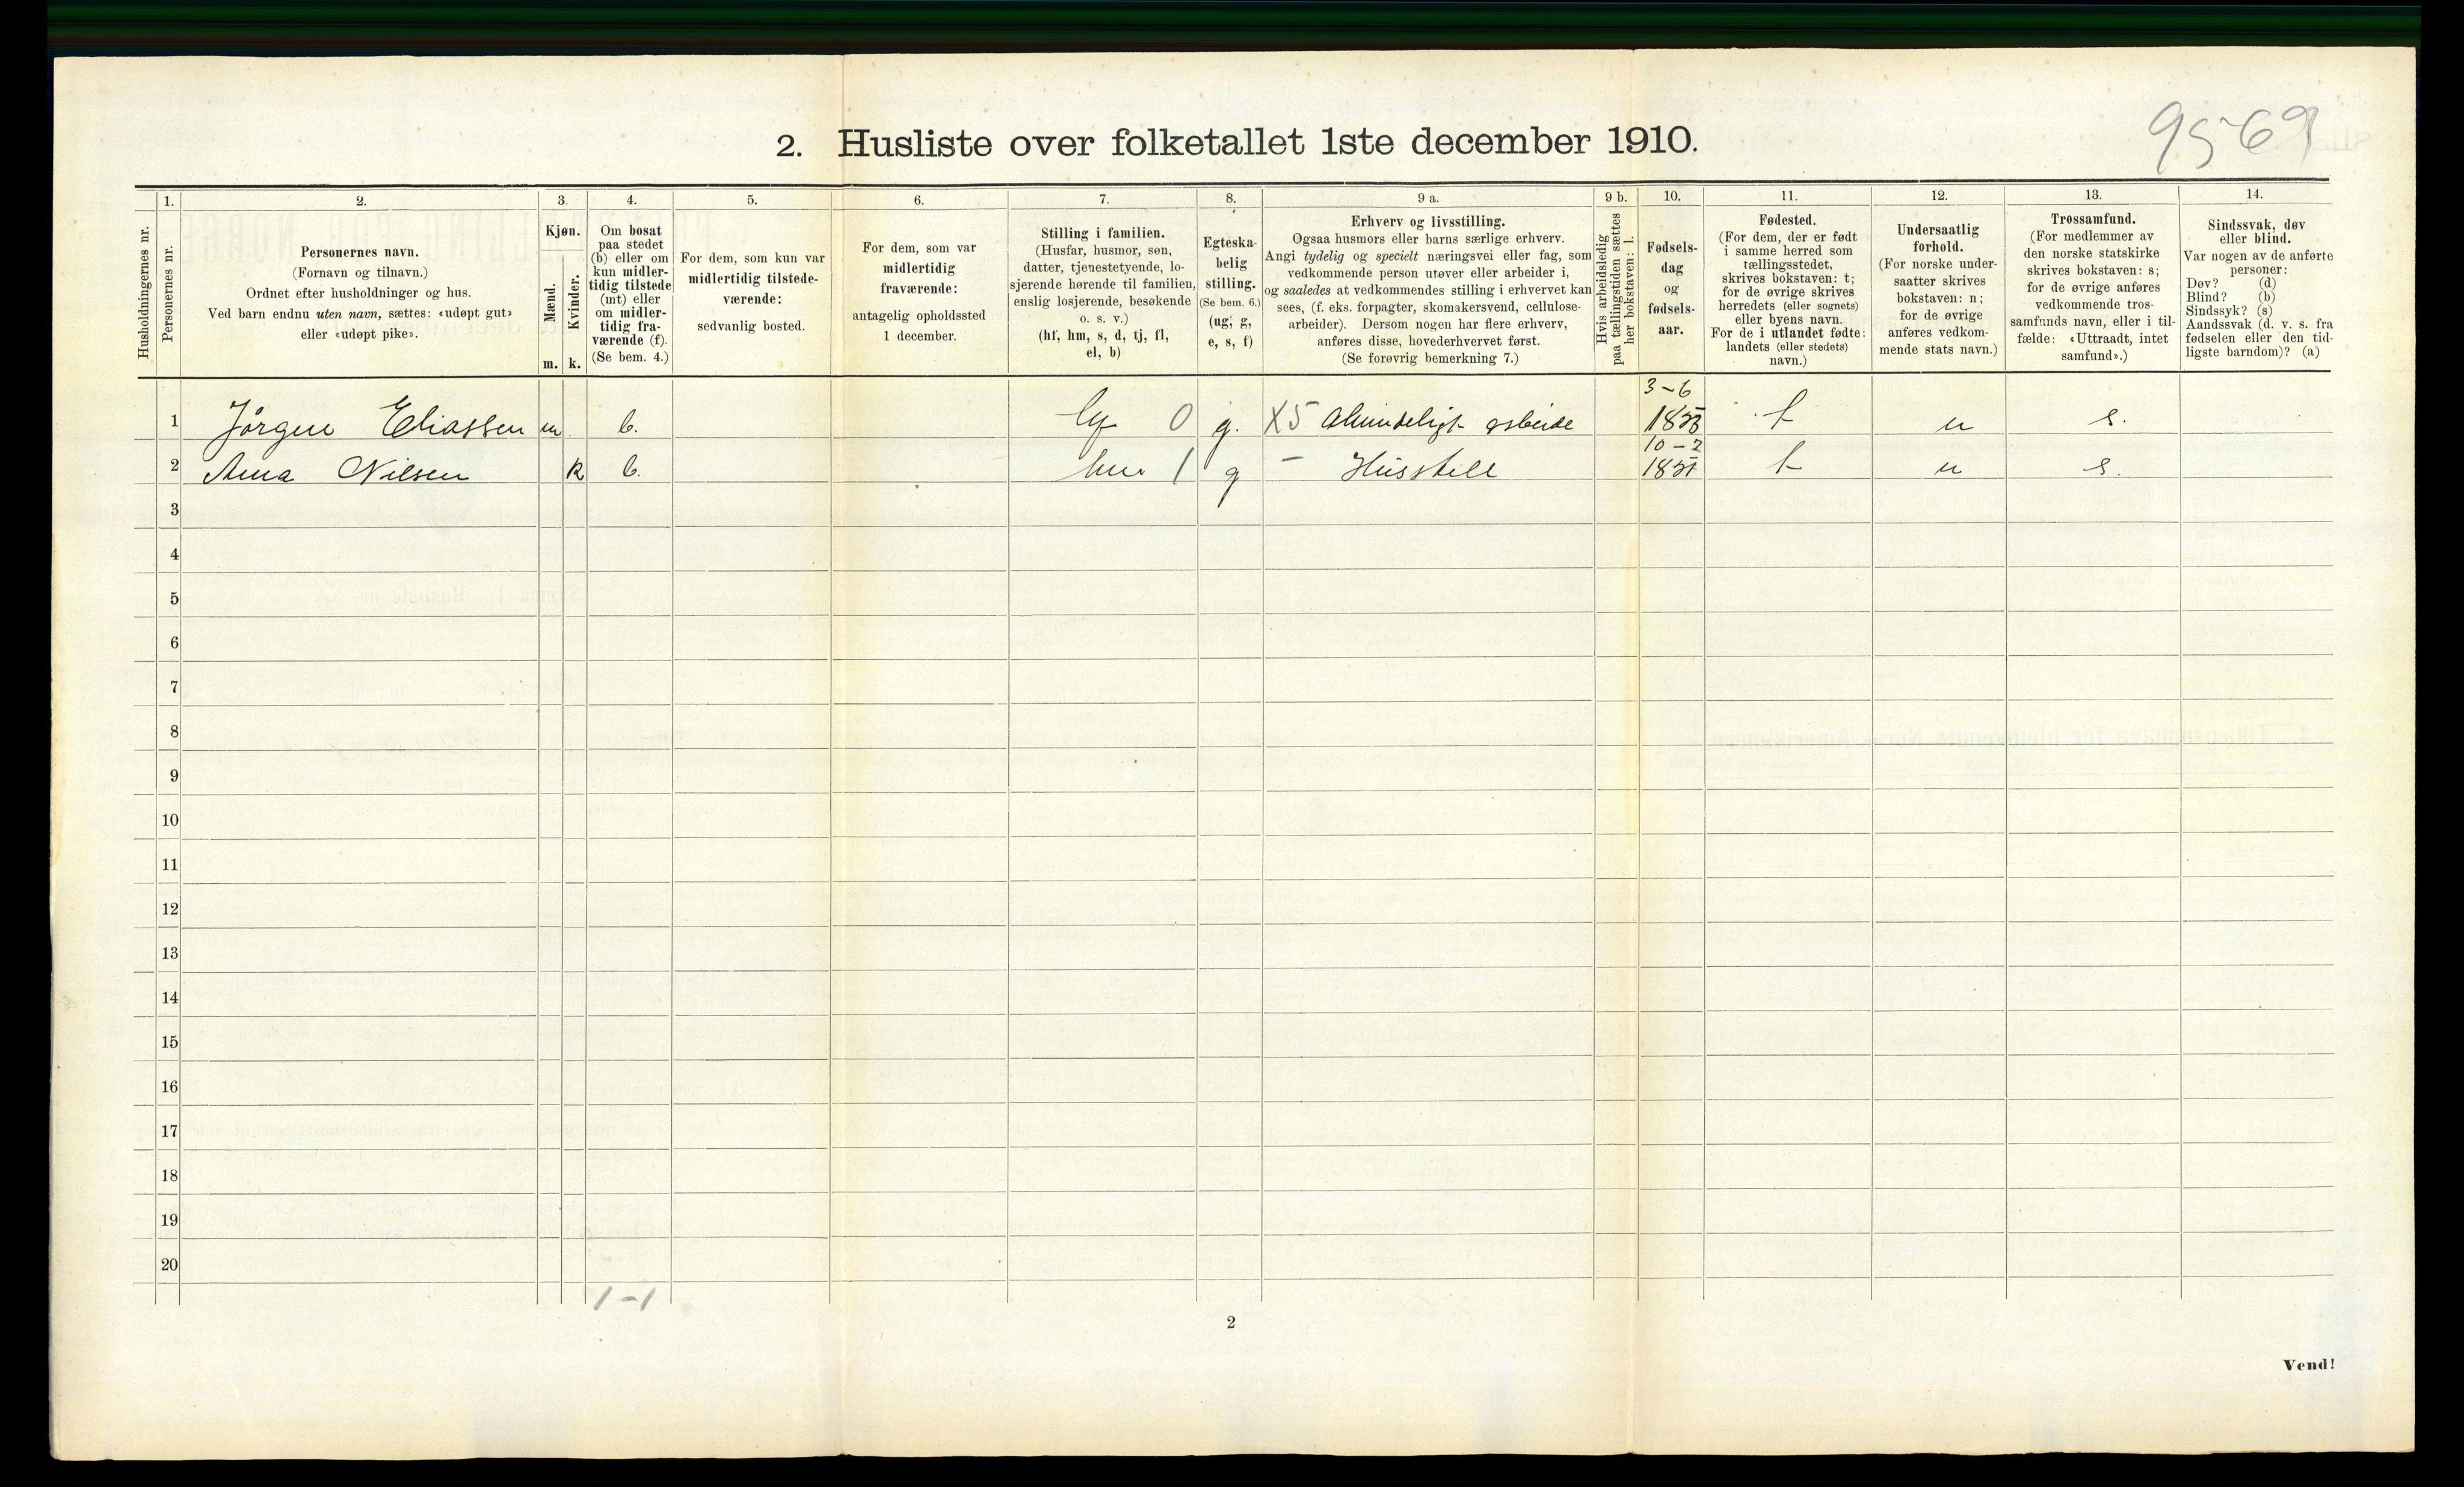 9569
2. Husliste over folketallet 1ste december 1910.
1. 2. 3. 4. 5. 6. 7. 8. 9 a. 9 b. 10. 11. 12. 13. 14.
Husholdningernes nr.
Personernes nr.
Personernes navn.
(Fornavn og tilnavn.)
Ordnet efter husholdninger og hus.
Ved barn endnu uten navn, sættes: «udøpt gut»
eller «udøpt pike».
Kjøn.
Mænd.
Kvinder.
m. k.
Om bosat
paa stedet
(b) eller om
kun midler-
tidig tilstede
(mt) eller
om midler-
tidig fra-
værende (f).
(Se bem. 4.)
For dem, som kun var
midlertidig tilstede-
værende:
sedvanlig bosted.
For dem, som var
midlertidig
fraværende:
antagelig opholdssted
1 december.
Stilling i familien.
(Husfar, husmor, søn,
datter, tjenestetyende, lo-
sjerende hørende til familien,
enslig losjerende, besøkende
o. s. v.)
(hf, hm, s, d, tj, fl,
el, b)
Egteska-
belig
stilling.
(Se bem. 6.)
(ug, g,
e, s, f)
Erhverv og livsstilling.
Ogsaa husmors eller barns særlige erhverv.
Angi tydelig og specielt næringsvei eller fag, som
vedkommende person utøver eller arbeider i,
og saaledes at vedkommendes stilling i erhvervet kan
sees, (f. eks. forpagter, skomakersvend, cellulose-
arbeider). Dersom nogen har flere erhverv,
anføres disse, hovederhvervet først.
(Se forøvrig bemerkning 7.)
Hvis arbeidsledig
paa tællingstiden sættes
her bokstaven: l.
Fødsels-
dag
og
fødsels-
aar.
Fødested.
(For dem, der er født
i samme herred som
tællingsstedet,
skrives bokstaven: t;
for de øvrige skrives
herredets (eller sognets)
eller byens navn.
For de i utlandet fødte:
landets (eller stedets)
navn.)
Undersaatlig
forhold.
(For norske under-
saatter skrives
bokstaven: n;
for de øvrige
anføres vedkom-
mende stats navn.)
Trossamfund.
(For medlemmer av
den norske statskirke
skrives bokstaven: s;
for de øvrige anføres
vedkommende tros-
samfunds navn, eller i til-
fælde: «Uttraadt, intet
samfund».)
Sindssvak, døv
eller blind.
Var nogen av de anførte
personer:
Døv? (d)
Blind? (b)
Sindssyk? (s)
Aandssvak (d. v. s. fra
fødselen eller den tid-
ligste barndom)? (a)
3-6
1 Jørgen Eliassen m b. hf 0 g. X5 Almindeligt arbeide t n s.
10-2
2 Anna Nilsen k b. hm 1 g - Husstell t n s.
3
4
5
6
7
8
9
10
11
12
13
14
15
16
17
18
19
20
1-1
2
Vend!